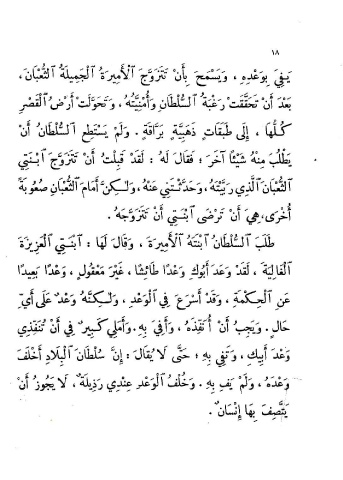 ١٨
يَفِيَ بِوَعْدِهِ ، وَيَسْمَحَ بِأَنْ تَتَزَوَّجَ الْأَمِيرَةُ الْجَمِيلَةُ الثُّعْبَانَ ،
بَعْدَ أَنْ تَحَقَّقَتْ رَغْبَةُ السُّلْطَانِ وَأُمْنِيَّتُهُ ، وَتَحَوَّلَتْ أَرْضُ الْقَصْرِ
كُلُّهَا ، إِلَى طَبَقَاتٍ ذَهَبِيَّةٍ بَرَّاقَةٍ . وَلَمْ يَسْتَطِعِ السُّلْطَانُ أَنْ
يَطْلُبَ مِنْهُ شَيْئًا آخَرَ ؛ فَقَالَ لَهُ : لَقَدْ قَبِلْتُ أَنْ تَتَزَوَّجَ ابْنَتِي
الثُّعْبَانَ الَّذِي رَبَّيْتَهُ ، وَحَدَّثْتَنِي عَنْهُ ، وَلٰكِنَّ أَمَامَ الثُّعْبَانِ صُعُوبَةً
أُخْرَى ، هِيَ أَنْ تَرْضَى ابْنَتِي أَنْ تَتَزَوَّجَهُ .
طَلَبَ السُّلْطَانُ ابْنَتَهُ الْأَمِيرَةَ ، وَقَالَ لَهَا : ابْنَتِي الْعَزِيزَةَ
الْغَالِيَةَ ، لَقَدْ وَعَدَ أَبُوكِ وَعْدًا طَائِشًا ، غَيْرَ مَعْقُولٍ ، وَعْدًا بَعِيدًا
عَنِ الْحِكْمَةِ ، وَقَدْ أَسْرَعَ فِي الْوَعْدِ ، وَلٰكِنَّهُ وَعْدٌ عَلَى أَيِّ
حَالٍ . وَيَجِبُ أَنْ أُنَفِّذَهُ ، وَأَفِيَ بِهِ . وَأَمَلِي كَبِيرٌ فِي أَنْ تُنَفِّذِي
وَعْدَ أَبِيكِ ، وَتَفِي بِهِ ؛ حَتَّى لَا يُقَالَ : إِنَّ سُلْطَانَ الْبِلَادِ أَخْلَفَ
وَعْدَهُ ، وَلَمْ يَفِ بِهِ . وَخُلْفُ الْوَعْدِ عِنْدِي رَذِيلَةٌ ، لَا يَجُوزُ أَنْ
يَتَّصِفَ بِهَا إِنْسَانٌ .